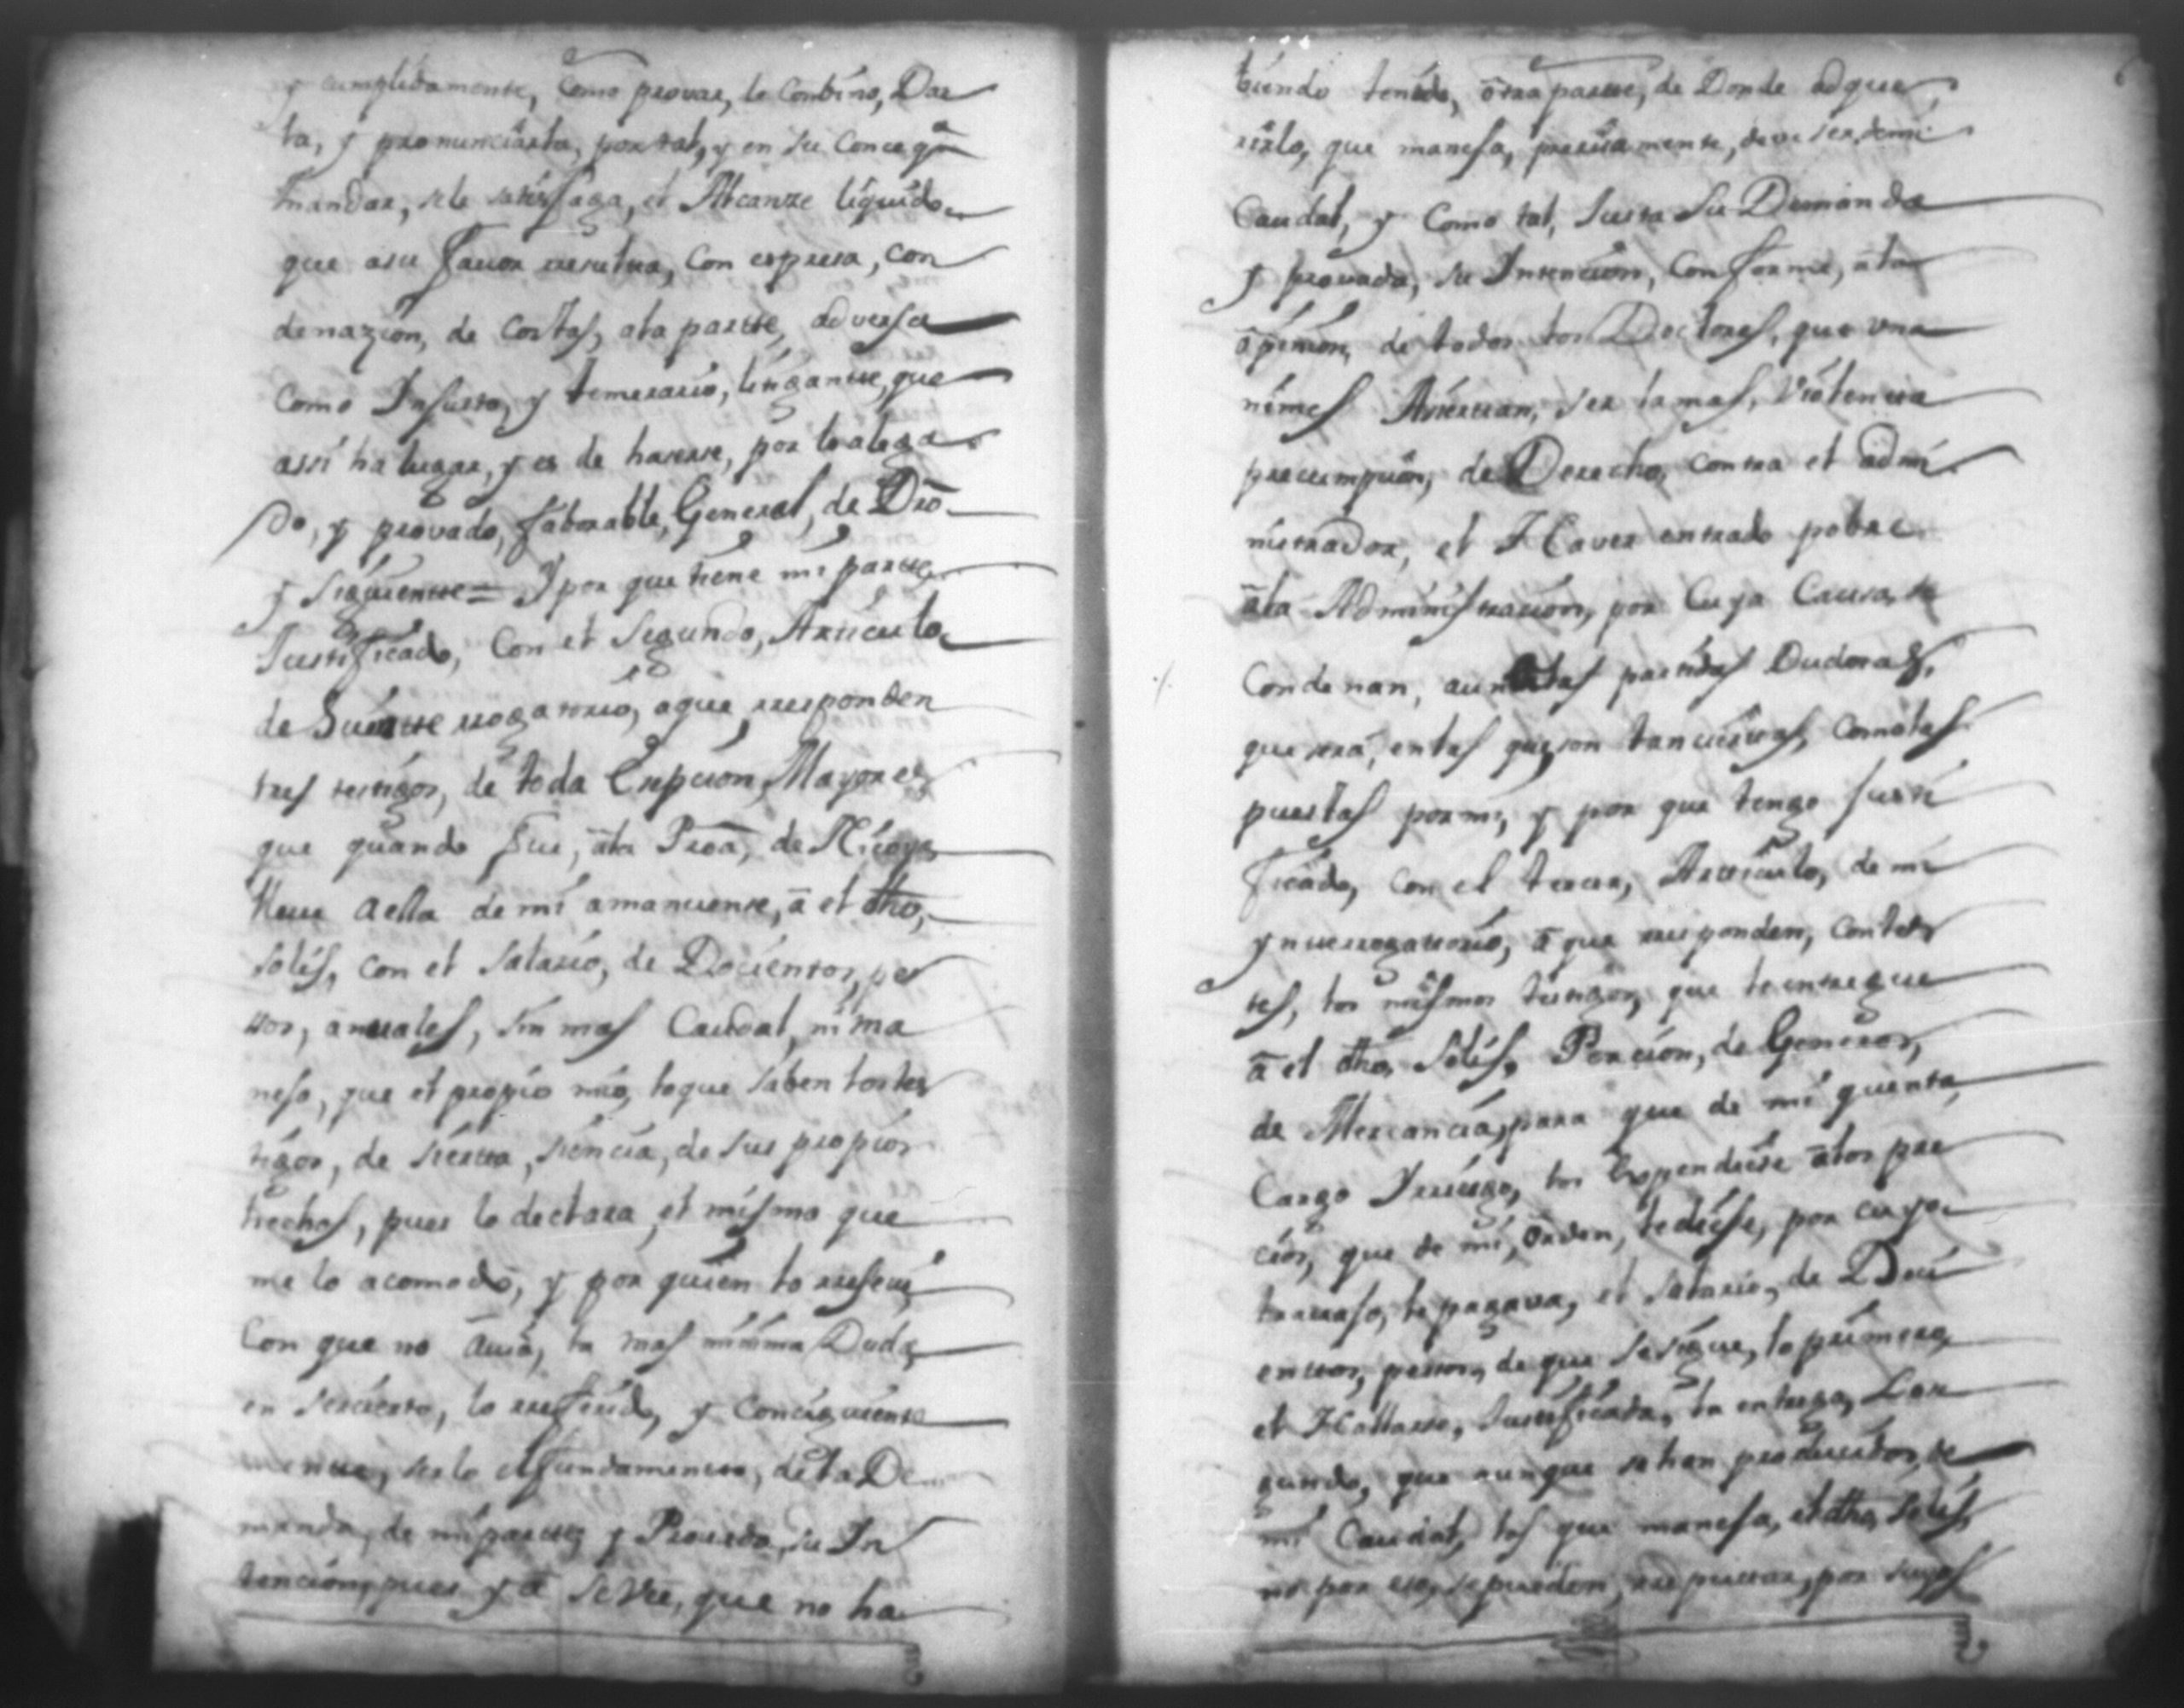 y cumplidamente, como provar, le combino, Dar
la, y pronunciarla, por tal, y en su Conceqᵃ
mandar, sele satisfaga, el Alcanze liquido
que asu favor resultta, con espresa, con
denazion, de Costas, ala partte, adversa
como Injusto, y temerario, litigantte, que
assi ha lugar, y es de haserse, por lo alega
do, y provado, faborable, General, de Dro
y siguientte = Y por que tiene mi partte
Justificado, Con el Segundo, Articulo
de Su rrogatorio, aque rresponden
tres testigos, de toda Ensepcion, Mayores
que quando fui, âla Proâ, de Nicoya
lleve aella de mi amanuense, â el dho,
Solis, con el salario, de Docientos, pe
sos, anuales, sin mas Caudal, ni ma
nejo, que el propio mio, loque saben los tes
tigos, de sierta, siencia, de sus propios
hechos, pues lo declara, el mismo que
me lo acomodó, y por quien lo rreseui
Con que no âuia, la mas minima Duda,
en ser cierto, lo rreferido, y Consiguiente
mentte, serlo el fundamentto, de la De
manda, de mi partte, y Provada, su In
tencion, pues ya se vee, que no ha
biendo tenido, ôtra partte, de Donde adque
rirlo, que maneja, presisamente, deve ser, de mi
Caudal, y Como tal, Justa su Demanda
y provada, su Intencion, Conforme, âla
ôpinion, de todos los Doctores, que una
nimes Asientan, ser la mas, violenta
presumpcion, de Derecho, contra el admi
nistrador, el Haver entrado pobre
âla Administracion, por Cuya Causa, se
Condenan, aun las partidas Dudosas,
que sera, enlas que son tan ciertas, Como las
puestas por mi, y por que tengo justi
ficado, con el tercer, Articulo, de mi
ynterrogatorio, â que rresponden, contes
tes, los mismos testigos, que le entregue
â el dho, Solis, Porcion, de Generos,
de Mercancia, para que de mi quenta,
Cargo Y rriesgo, los Espendiese âlos pre
cios, que de mi, ôrden, le diese, por cuyo
trauajo, le pagava, el salario, de Doci
enttos, pessos, de que se sigue, lo primero,
el Hallarse, Justificada, la entrega, Lo se
gundo, que aunque se han producido, de
mi Caudal, los que maneja, el dho, Solis,
no por eso, se pueden, rreputtar, por suyos